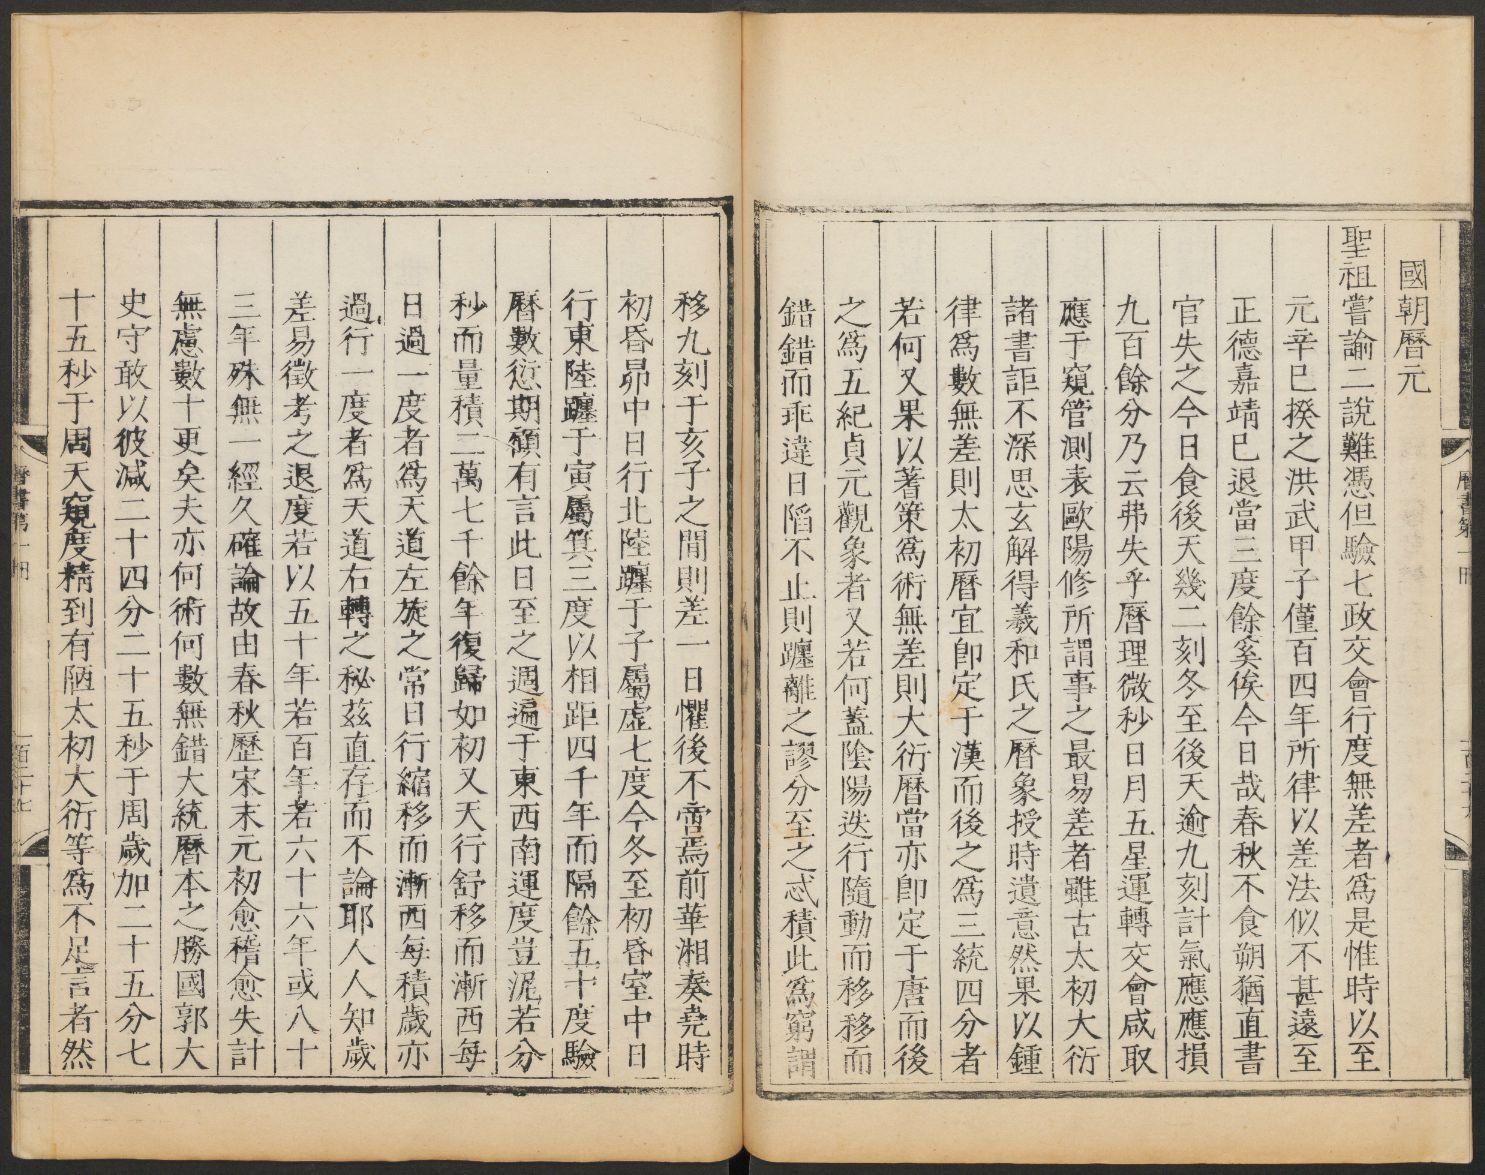 國朝曆元
聖祖嘗諭二說難憑但驗七政交會行度無差者爲是惟時以至
元辛巳揆之洪武甲子僅百四年所律以差法似不甚遠至
正德嘉靖已退當三度餘奚俟今日哉春秋不食朔猶直書
官失之今日食後天幾二刻冬至後天逾九刻計氣應應損
九百餘分乃云弗失乎曆理微秒日月五星運轉交會咸取
應于窺管測表歐陽修所謂事之最易差者雖古太初大衍
諸書詎不深思玄解得羲和氏之曆象授時遺意然果以鍾
律爲數無差則太初曆宜卽定于漢而後之爲三統四分者
若何又果以蓍策爲術無差則大衍曆當亦卽定于唐而後
之爲五紀貞元觀象者又若何蓋陰陽迭行隨動而移移而
錯錯而乖違日陷不止則躔離之謬分至之忒積此爲窮謂
移九刻于亥子之間則差一日懼後不啻焉前華湘奏堯時
初昏昴中日行北陸躔于子屬虛七度今冬至初昏室中日
行東陸躔于寅屬箕三度以相距四千年而隔餘五十度驗
曆數愆期領有言此日至之週遍于東西南運度豈泥若分
秒而量積二萬七千餘年復歸如初又天行舒移而漸西每
日過一度者爲天道左旋之常日行縮移而漸西每積歲亦
過行一度者爲天道右轉之秘茲直存而不論耶人人知歲
差易徵考之退度若以五十年若百年若六十六年或八十
三年殊無一經久確論故由春秋歷宋末元初愈稽愈失計
無慮數十更矣夫亦何術何數無錯大統曆本之勝國郭大
史守敢以彼减二十四分二十五秒于周歲加二十五分七
十五秒于周天窺度精到有陋太初大衍等爲不足言者然
曆書第一冊
曆書第一冊
一百二十七